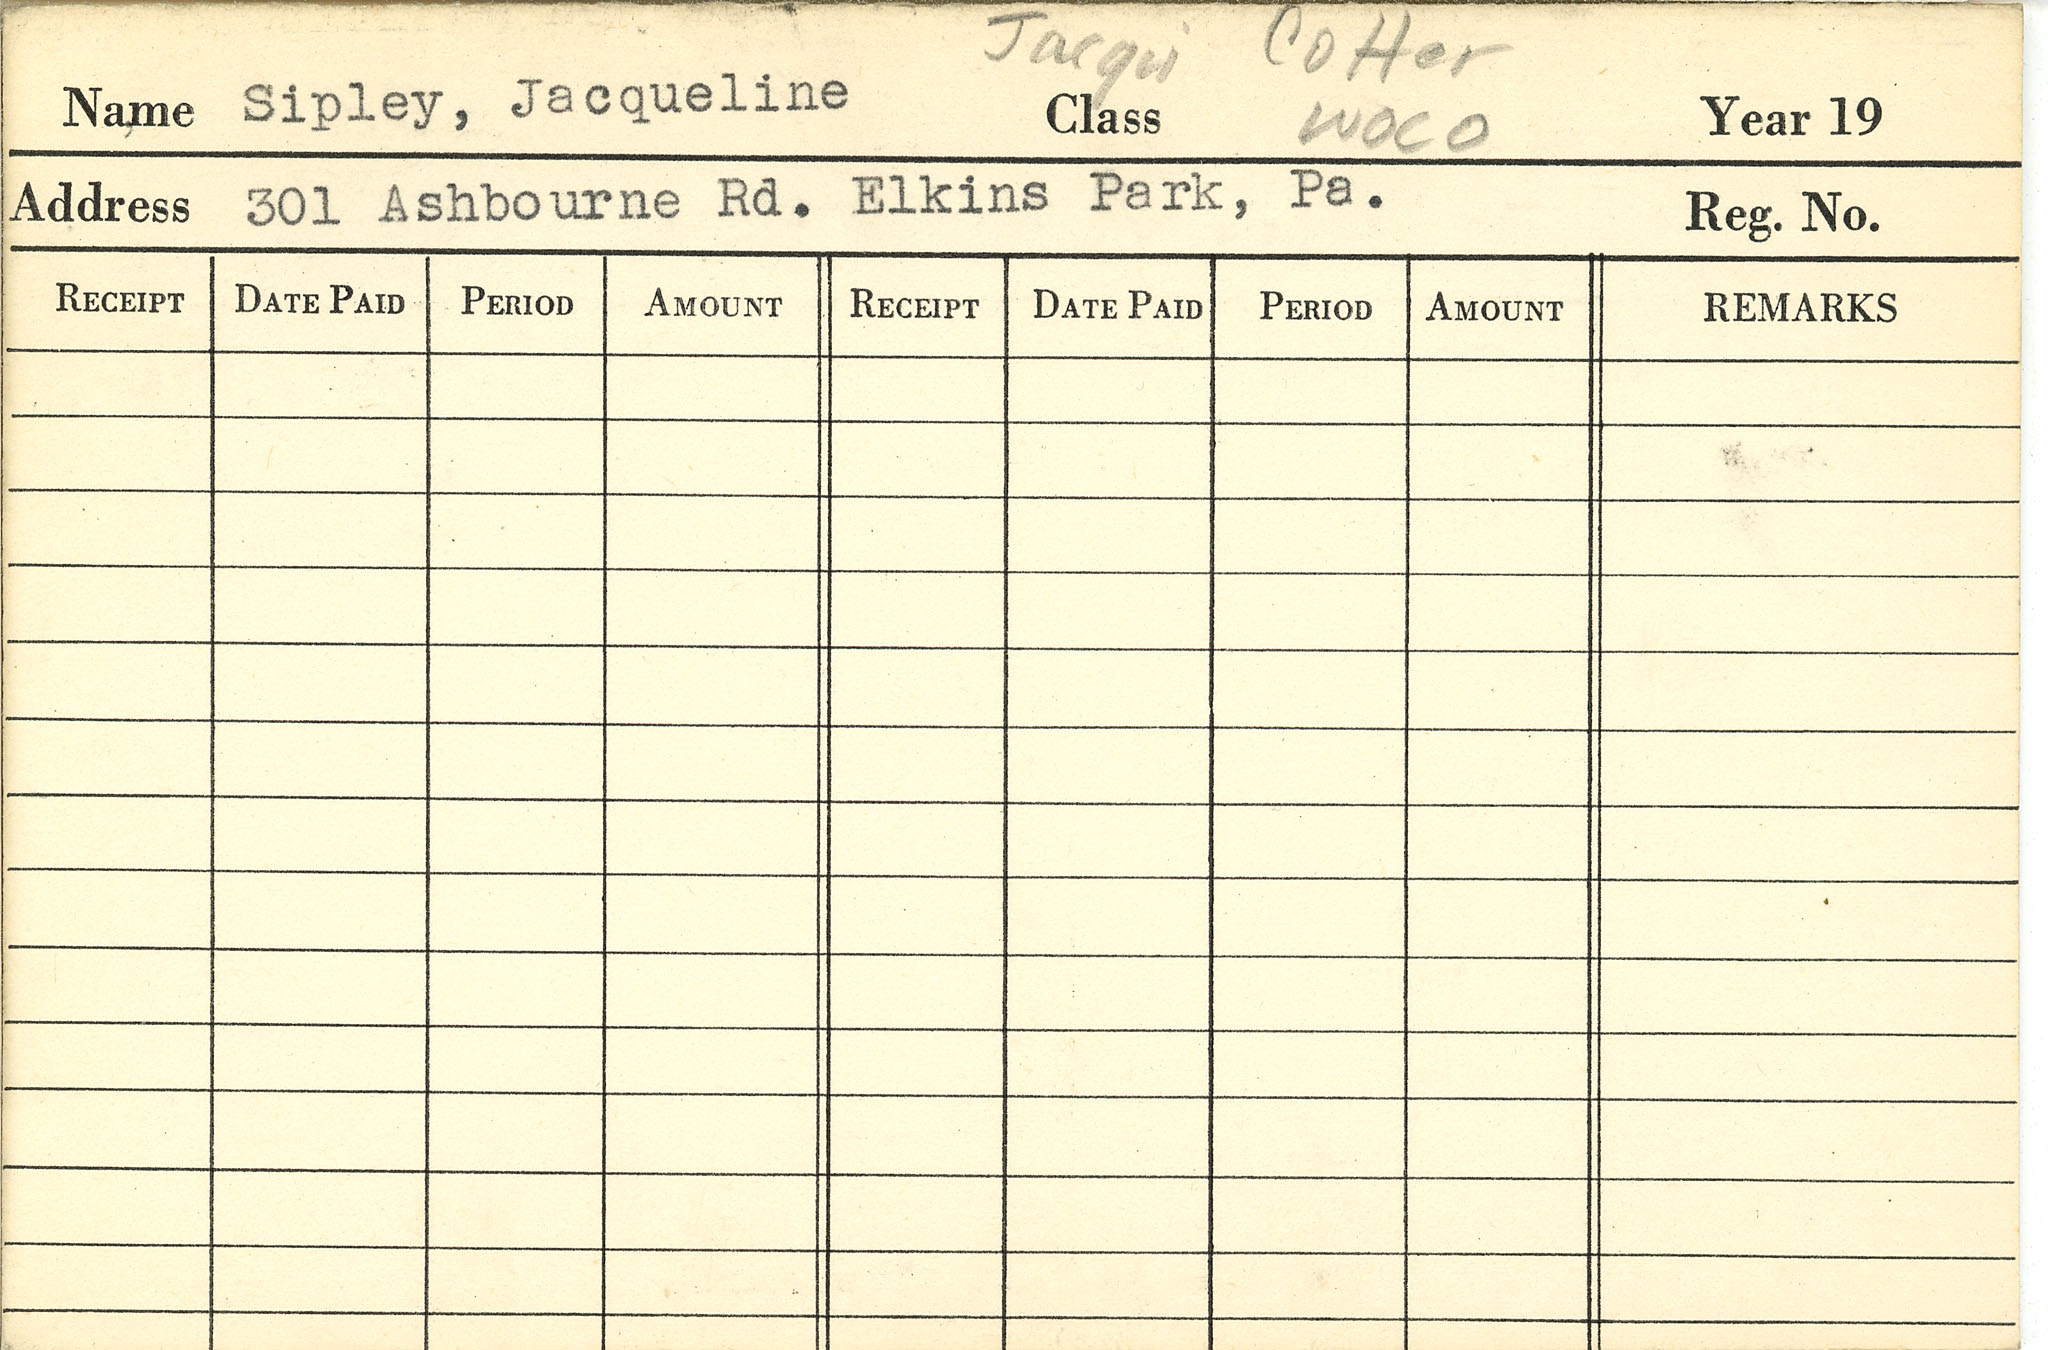 Jacqui Cotter
Name Sipley, Jacqueline Class WOCO Year 19
Address 301 Ashbourne Rd. Elkins Park, Pa. Reg. No.
RECEIPT DATE PAID PERIOD AMOUNT RECEIPT DATE PAID PERIOD AMOUNT REMARKS